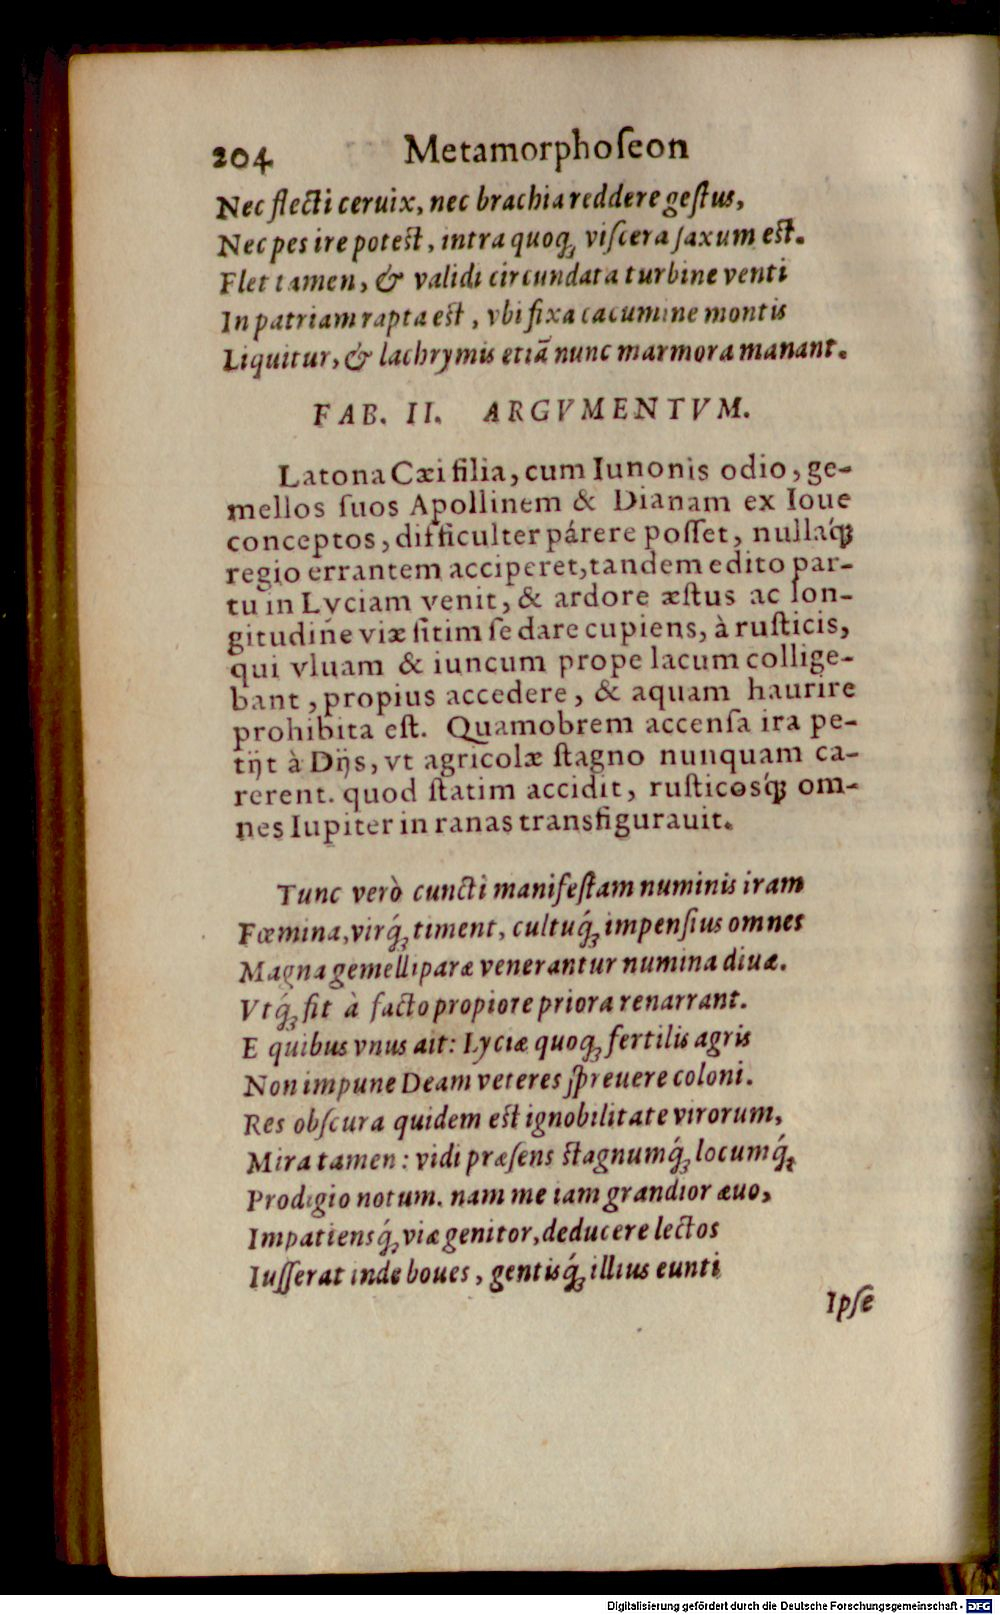 204 Metamorphoſeon
Nec flecti ceruix, nec brachia reddere geſtus,
Nec pes ire potest, intra quoq; viſcera ſaxum est.
Flet tamen, & validi circundata turbine venti
In patriam rapta est, vbi fixa cacumine montis
Liquitur, & lachrymis etiã nunc marmora manant.
FAB. II. ARGVMENTVM.
Latona Cæi filia, cum Iunonis odio, ge-
mellos ſuos Apollinem & Dianam ex Ioue
conceptos, difficulter párere poſſet, nullaq́;
regio errantem acciperet, tandem edito par-
tu in Lyciam venit, & ardore æſtus ac lon-
gitudine viæ ſitim ſedare cupiens, à ruſticis,
qui vluam & iuncum prope lacum collige-
bant, propius accedere, & aquam haurire
prohibita eſt. Quamobrem accenſa ira pe-
tijt à Dijs, vt agricolæ ſtagno nunquam ca-
rerent. quod ſtatim accidit, ruſticosq́; om-
nes Iupiter in ranas transfigurauit.
Tunc verò cuncti manifeſtam numinis iram
Fœmina, virq́; timent, cultuq́; impenſius omnes
Magna gemelliparæ venerantur numina diuæ.
Vtq́; fit à facto propiore priora renarrant.
E quibus vnus ait: Lyciæ quoq; fertilis agris
Non impune Deam veteres ſpreuere coloni.
Res obſcura quidem est ignobilitate virorum,
Mira tamen: vidi præſens stagnumq́; locumq́;
Prodigio notum. nam me iam grandior æuo,
Impatiensq́; viæ genitor, deducere lectos
Iuſſerat inde boues, gentisq́; illius eunti
Ipſe
Digitalisierung gefördert durch die Deutsche Forschungsgemeinschaft - DFG